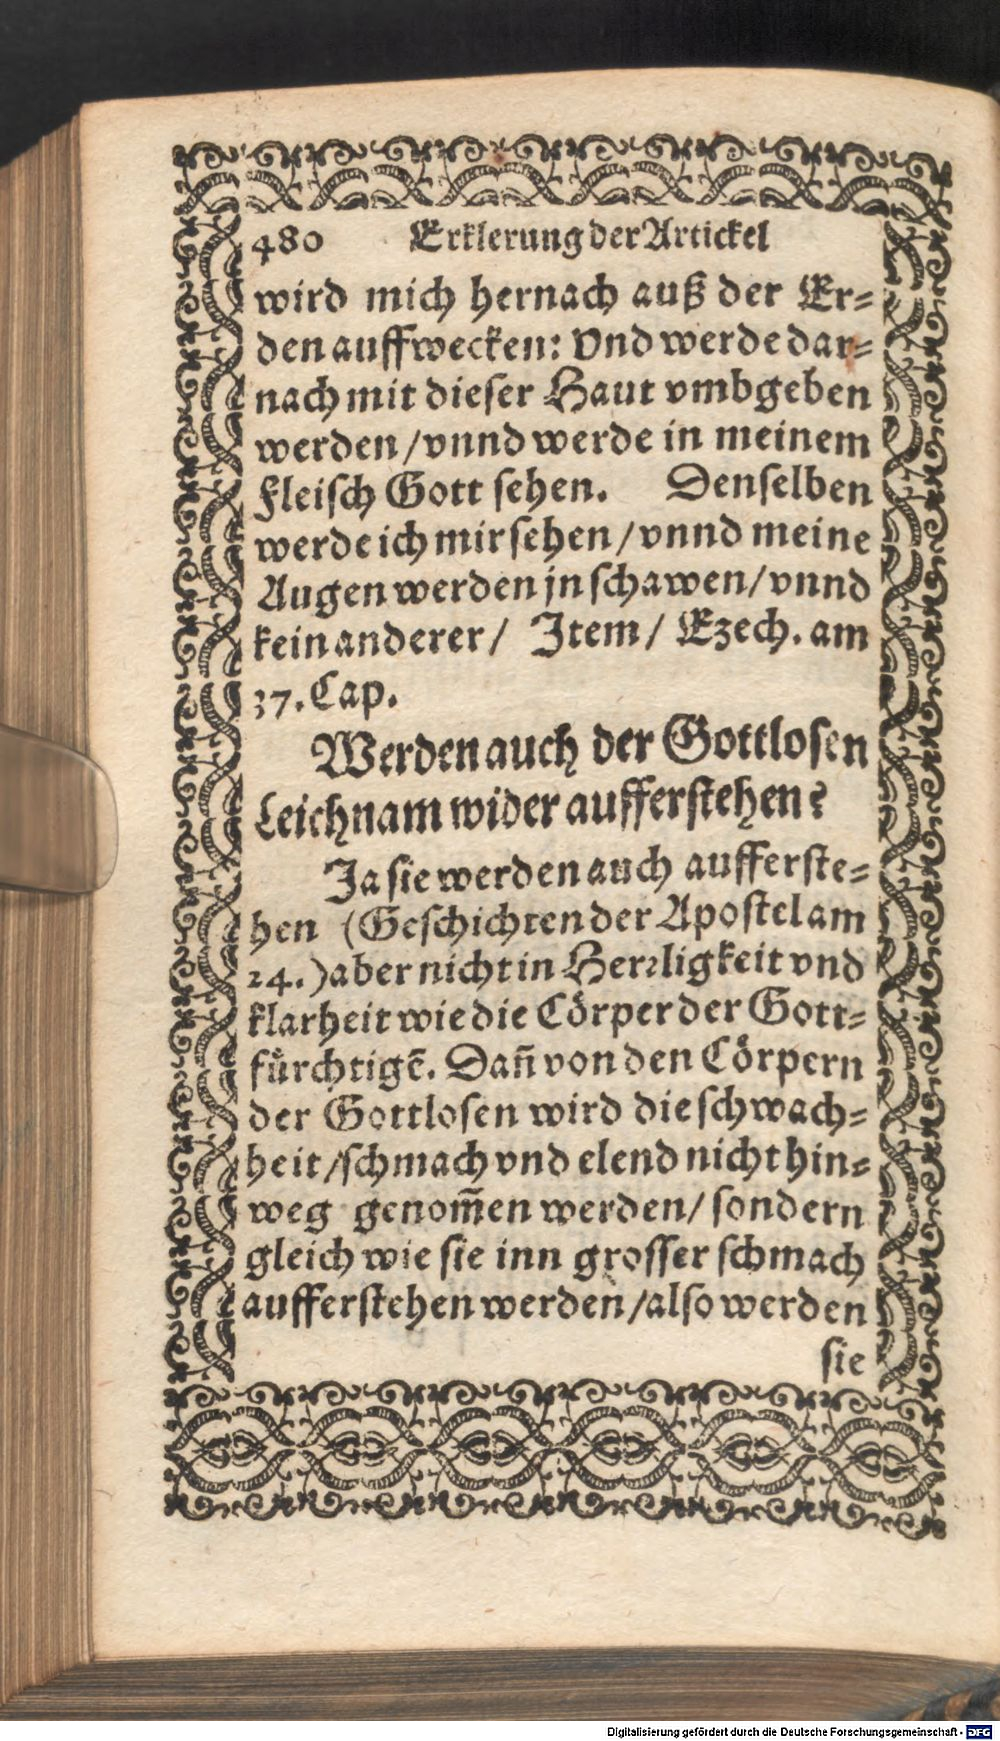 480 Erklerung der Artickel
wird mich hernach auß der Er-
den auffwecken: Vnd werde dar-
nach mit dieser Haut vmbgeben
werden / vnnd werde in meinem
Fleisch Gott sehen. Denselben
werde ich mir sehen / vnnd meine
Augen werden jn schawen / vnnd
kein anderer / Item / Ezech. am
37. Cap.
Werden auch der Gottlosen
Leichnam wider aufferstehen?
Ja sie werden auch aufferste-
hen (Geschichten der Apostel am
24.) aber nicht in Herrligkeit vnd
klarheit wie die Cörper der Gott-
fürchtigẽ. Dañ von den Cörpern
der Gottlosen wird die schwach-
heit / schmach vnd elend nicht hin-
weg genom̃en werden / sondern
gleich wie sie inn grosser schmach
aufferstehen werden / also werden
sie
Digitalisierung gefördert durch die Deutsche Forschungsgemeinschaft - DFG